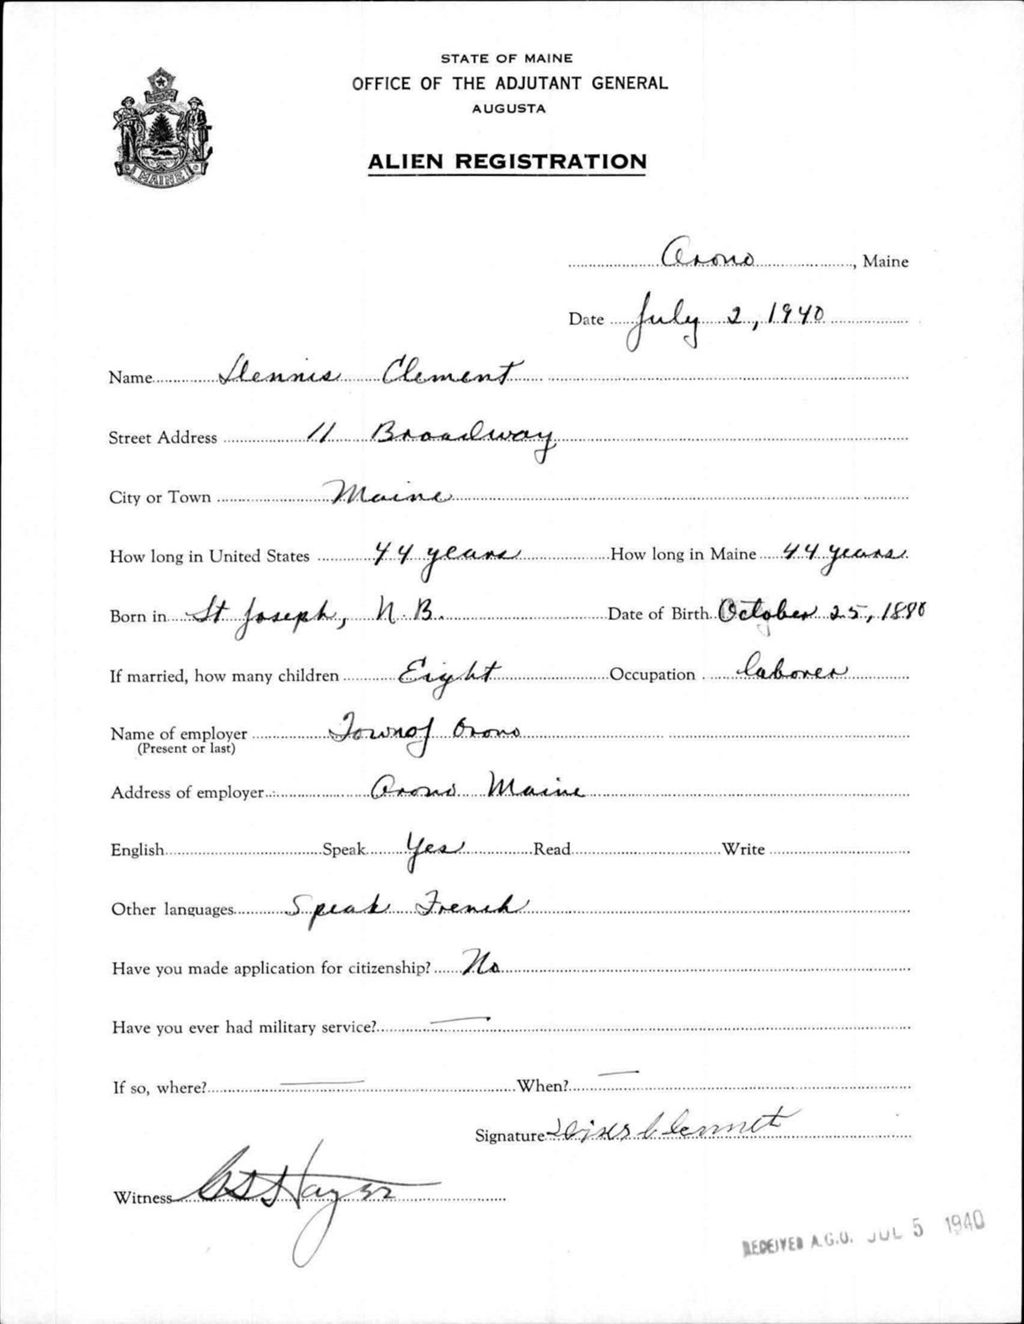 STATE OF MAINE
OFFICE OF THE ADJUTANT GENERAL
AUGUSTA
ALIEN REGISTRATION
MAINE
Orono, Maine
Date July 2, 1940
Name Dennis Clement
Street Address 11 Broadway
City or Town Maine
How long in United States 44 years How long in Maine 44 years
Born in St Joseph, N.B. Date of Birth October 25, 1880
If married, how many children Eight Occupation laborer
Name of employer Town of Orono
(Present or last)
Address of employer Orono Maine
English Speak Yes Read Write
Other languages Speak French
Have you made application for citizenship? No
Have you ever had military service? —
If so, where? — When? —
Signature
Witness
RECEIVED A.G.O. JUL 5 1940